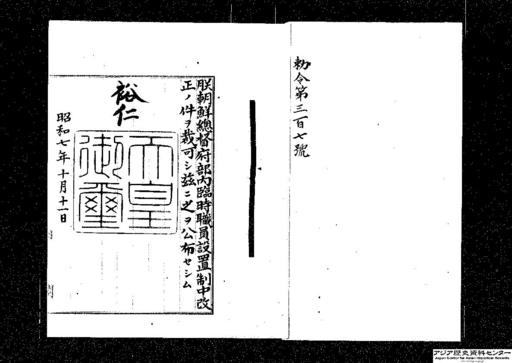 勅令第三百七號
朕朝鮮總督府部内臨時職員設置制中改
正ノ件ヲ裁可シ茲ニ之ヲ公布セシム
裕仁
天皇
御璽
昭和七年十月十一日
アジア歴史資料センター
Japan Center for Asian Historical Records